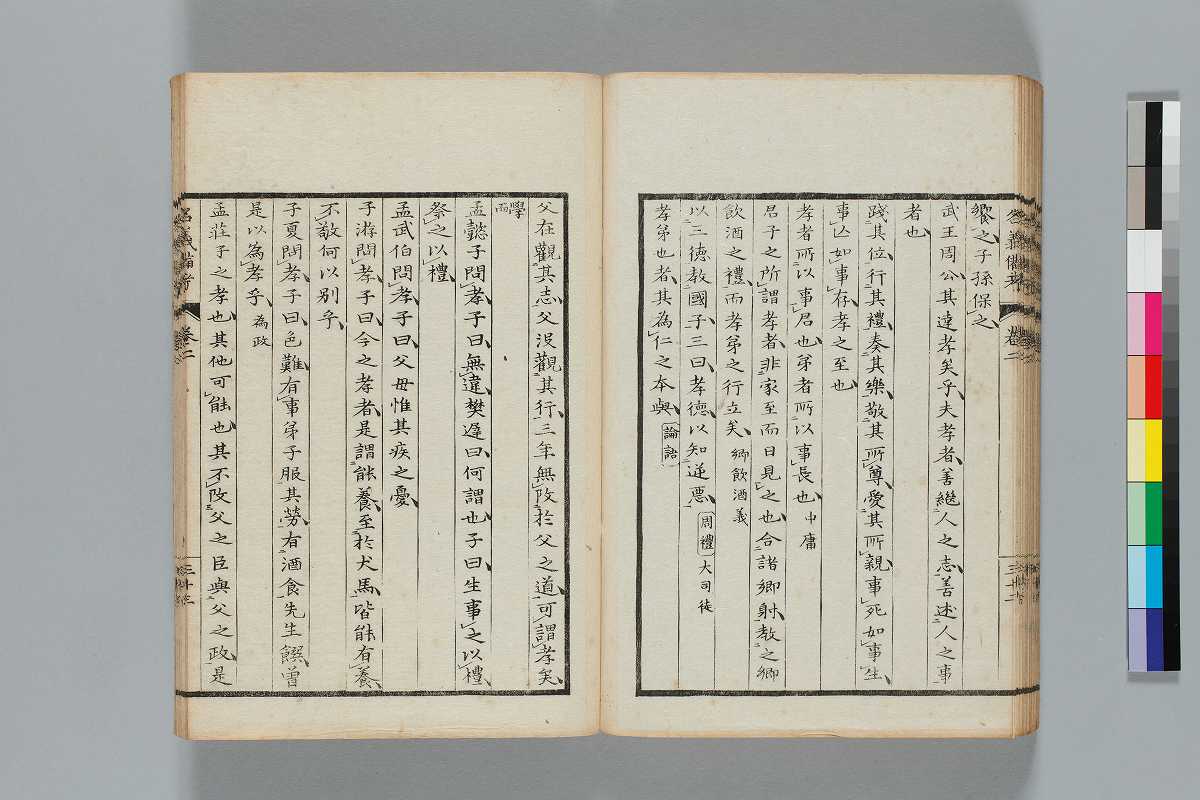 名義備考 卷二 三十二
饗之子孫保之
武王周公其達孝矣乎夫孝者善繼人之志善述人之事
者也
踐其位行其禮奏其樂敬其所尊愛其所親事死如事生
事亡如事存孝之至也
孝者所以事君也弟者所以事長也 中庸
君子之所謂孝者非家至而日見之也合諸鄉射教之鄉
飲酒之禮而孝弟之行立矣 鄉飲酒義
以三德教國子三曰孝德以知逆惡 周禮 大司徒
孝弟也者其為仁之本與 論語
父在觀其志父沒觀其行三年無改於父之道可謂孝矣
學而
孟懿子問孝子曰無違樊遲曰何謂也子曰生事之以禮
祭之以禮
孟武伯問孝子曰父母惟其疾之憂
子游問孝子曰今之孝者是謂能養至於犬馬皆能有養
不敬何以別乎
子夏問孝子曰色難有事弟子服其勞有酒食先生饌曾
是以為孝乎 為政
孟莊子之孝也其他可能也其不改父之臣與父之政是
名義備考 卷二 三十三